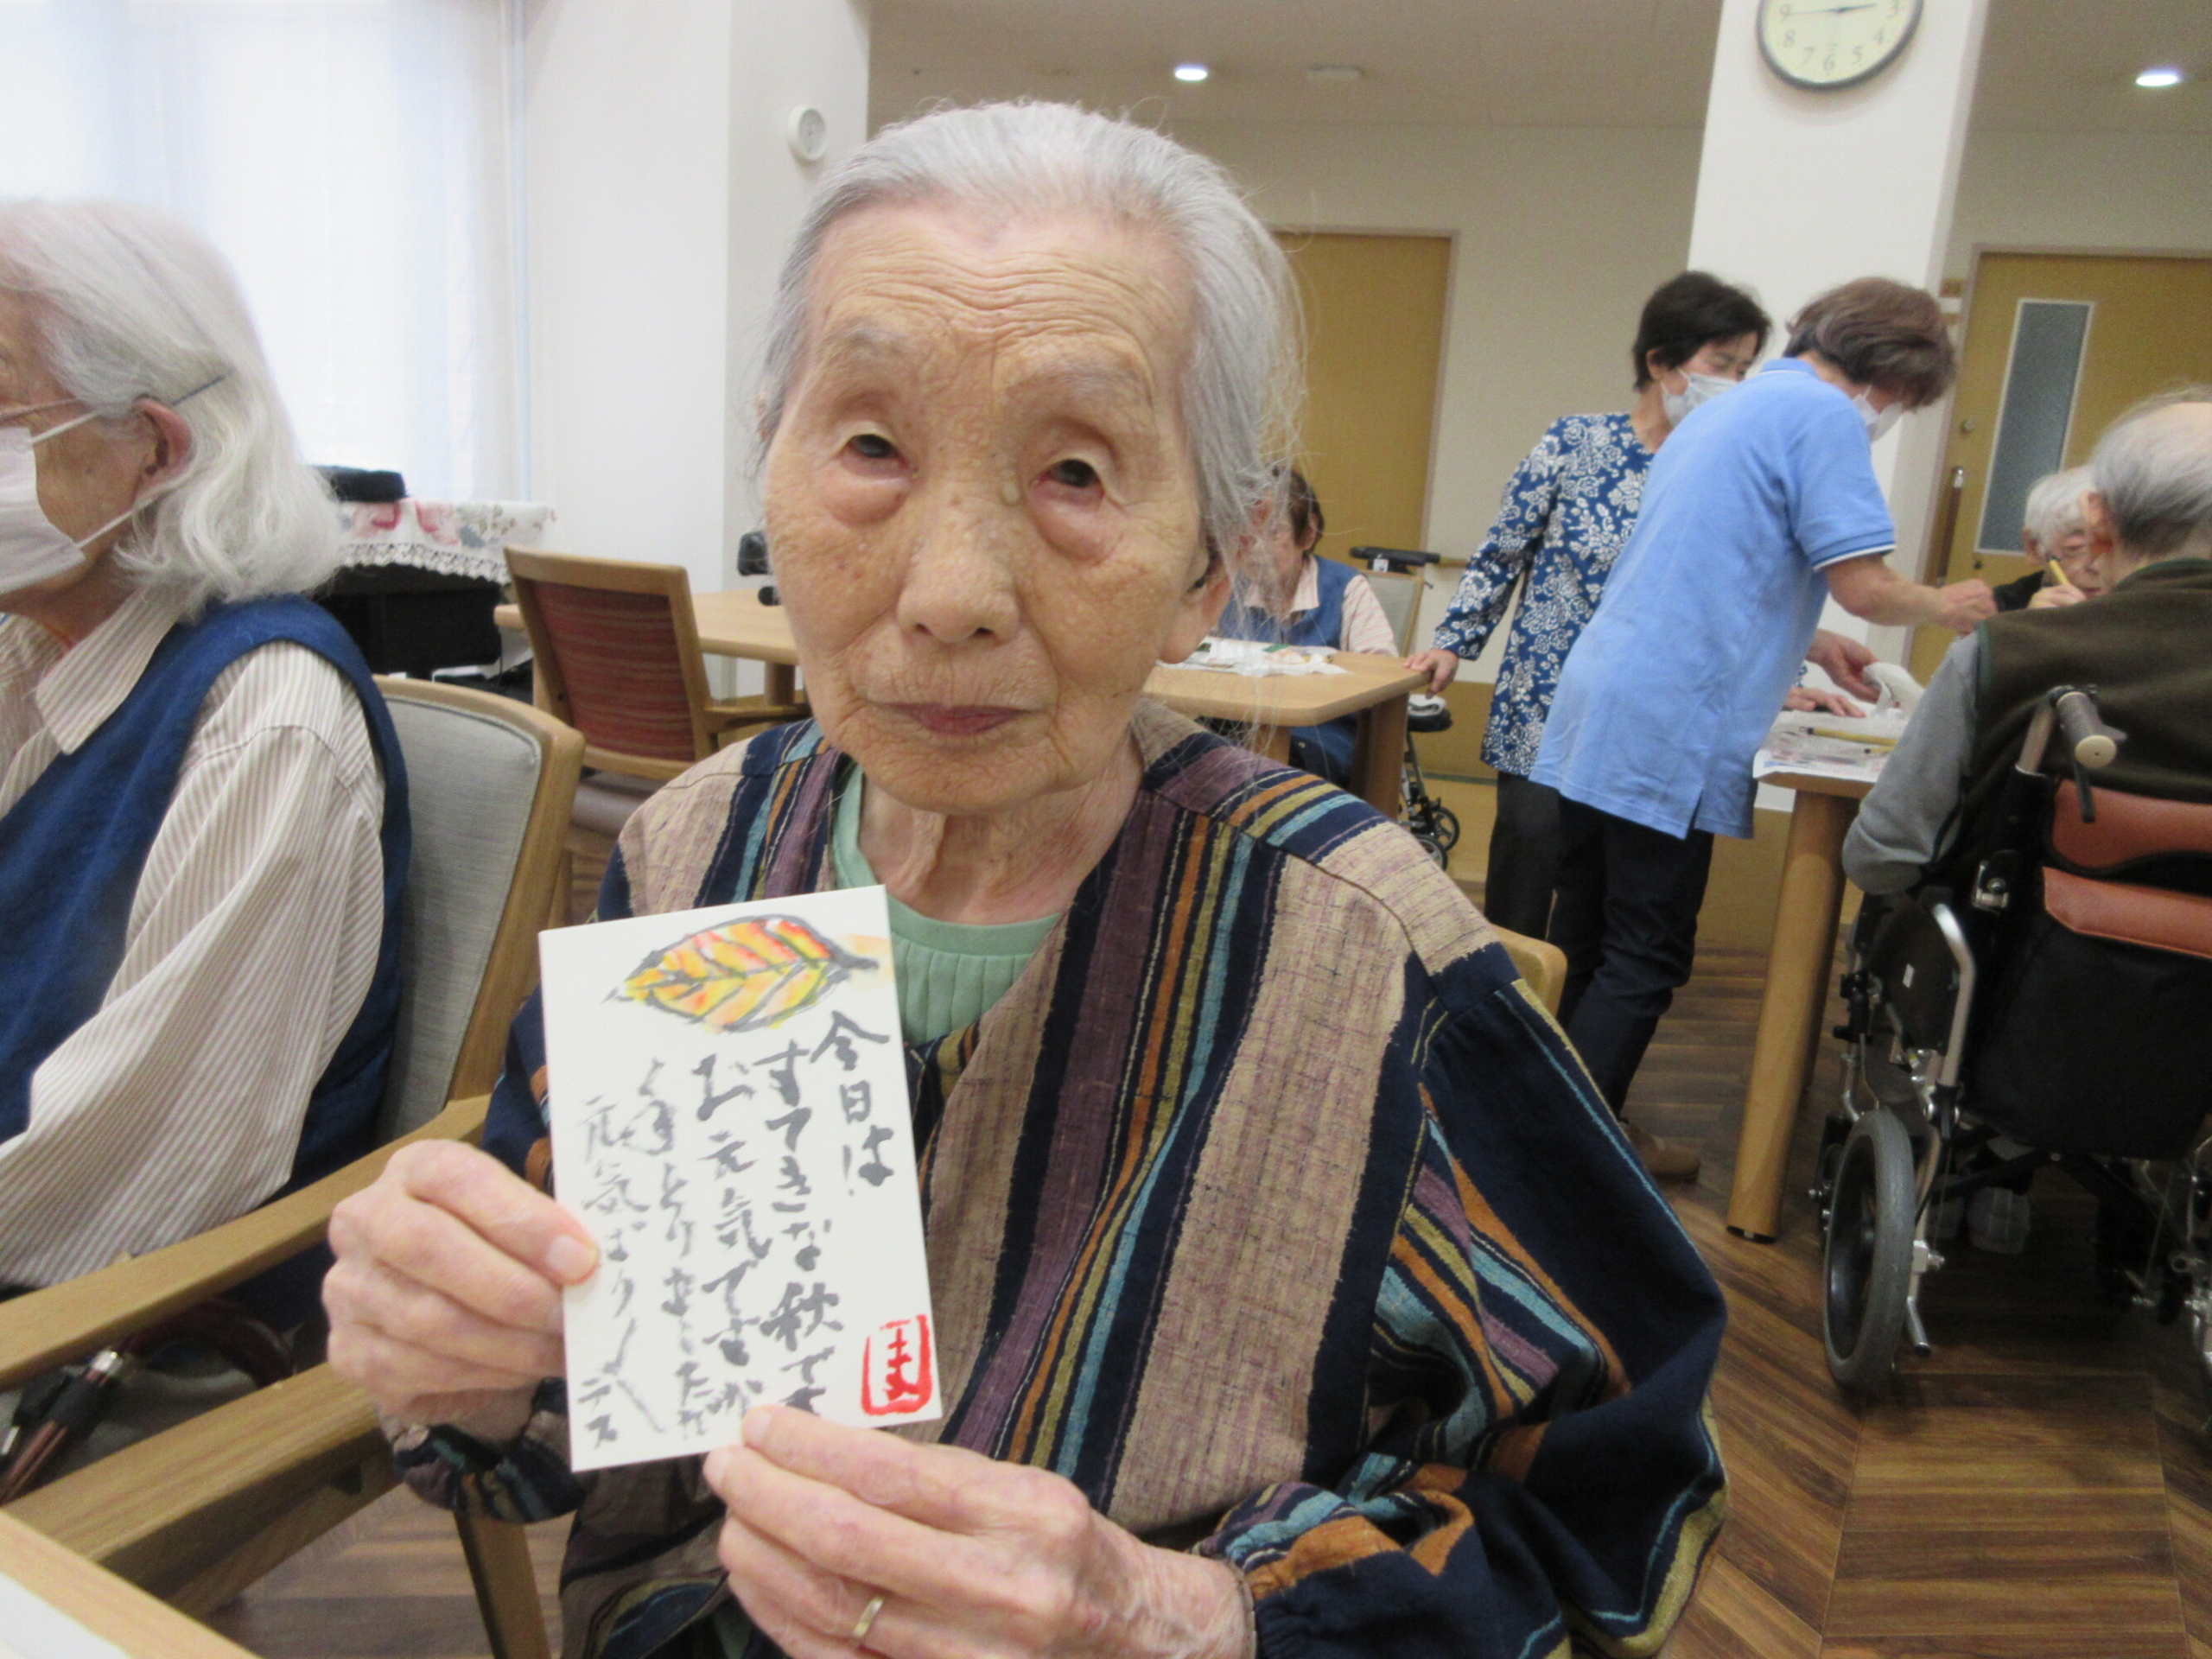 今日は
すてきな秋です
お元気ですか
年とりましたが
元気ばりばり
デス
まま
9
8
7
6
5
4
3